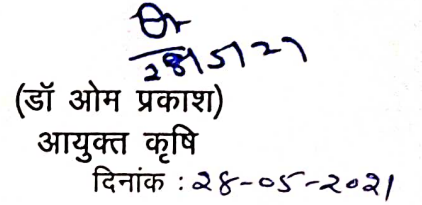 28/5/21
(डॉ ओम प्रकाश)
आयुक्त कृषि
दिनांक : 28-05-2021